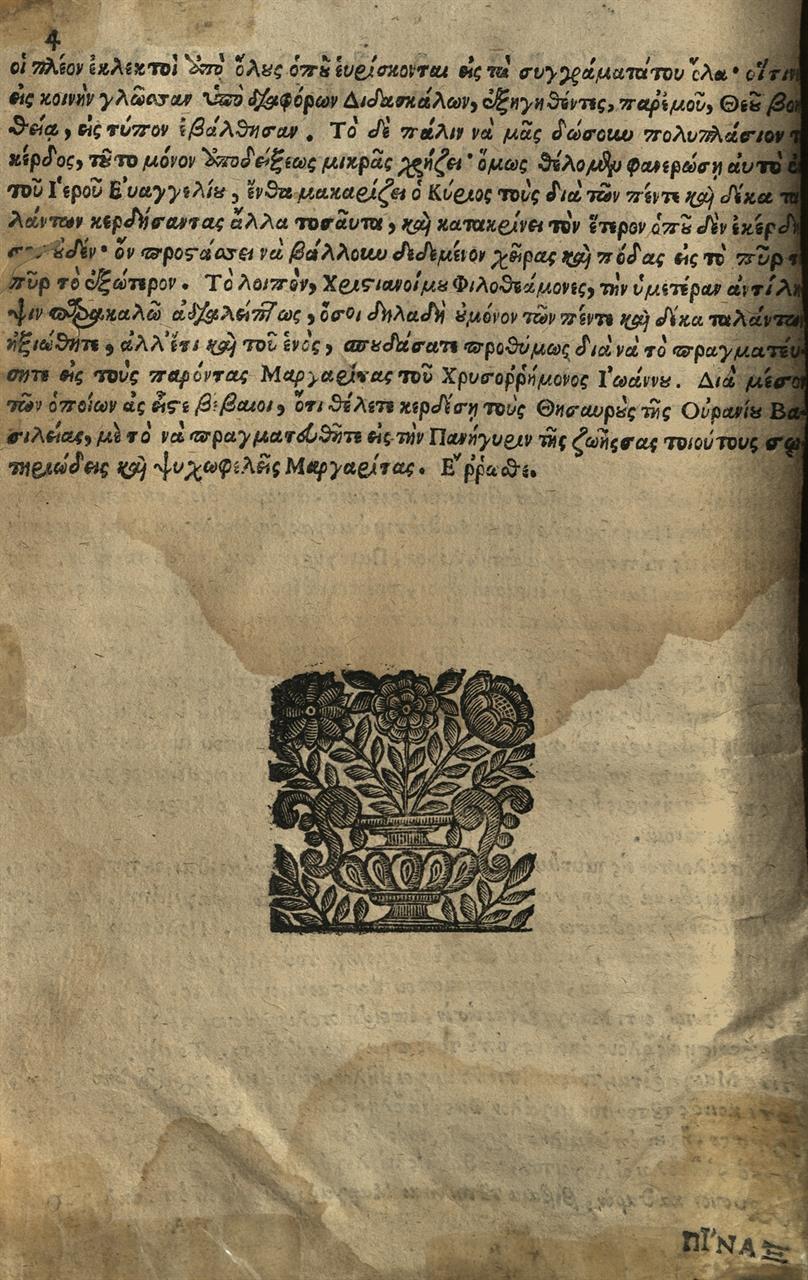 4
οἱ πλέον ἐκλεκτοὶ ὑπὸ ὅλους ὁποῦ εὑρίσκονται εἰς τὰ συγγράματάτου ὅλα· οἵτιν
εἰς κοινὴν γλῶσσαν ὑπὸ διαφόρων Διδασκάλων, ἐξηγηθέντες, παρ' ἐμοῦ, Θεοῦ βοη
θείᾳ, εἰς τύπον ἐβάλθησαν. Τὸ δὲ πάλιν νὰ μᾶς δώσουν πολυπλάσιον τ
κέρδος, τοῦτο μόνον ὑποδείξεως μικρᾶς χρήζει· ὅμως θέλομεν φανερώση αὐτὸ
τοῦ Ἱεροῦ Εὐαγγελίου, ἔνθα μακαρίζει ὁ Κύριος τοὺς διὰ τῶν πέντε καὶ δέκα τα
λάντων κερδήσαντας ἄλλα τοσαῦτα, καὶ κατακρίνει τὸν ἕτερον ὁποῦ δὲν ἐκέρδη
οὐδέν· ὃν προστάσσει νὰ βάλλουν δεδεμένον χεῖρας καὶ πόδας εἰς τὸ πῦρ τ
πῦρ τὸ ἐξώτερον. Τὸ λοιπὸν, Χριστιανοίμου Φιλοθεάμονες, τὴν ὑμετέραν ἀντίλη
ψιν παρακαλῶ ἀδιαλείπτως, ὅσοι δηλαδὴ οὐ μόνον τῶν πέντε καὶ δέκα ταλάντων
ἠξιώθητε, ἀλλ' ἔτι καὶ τοῦ ἑνὸς, σπουδάσατε προθύμως διὰ νὰ τὸ πραγματεύ-
σητε εἰς τοὺς παρόντας Μαργαρίτας τοῦ Χρυσοῤῥήμονος Ἰωάννου. Διὰ μέσου
τῶν ὁποίων ἂς εἶστε βέβαιοι, ὅτι θέλετε κερδέση τοὺς Θησαυροὺς τῆς Οὐρανίου Βα-
σιλείας, μὲ τὸ νὰ πραγματευθῆτε εἰς τὴν Πανήγυριν τῆς ζωῆςσας τοιούτους σω-
τηριώδεις καὶ ψυχωφελεῖς Μαργαρίτας. Ἔῤῥωσθε.
ΠΙ'ΝΑΞ